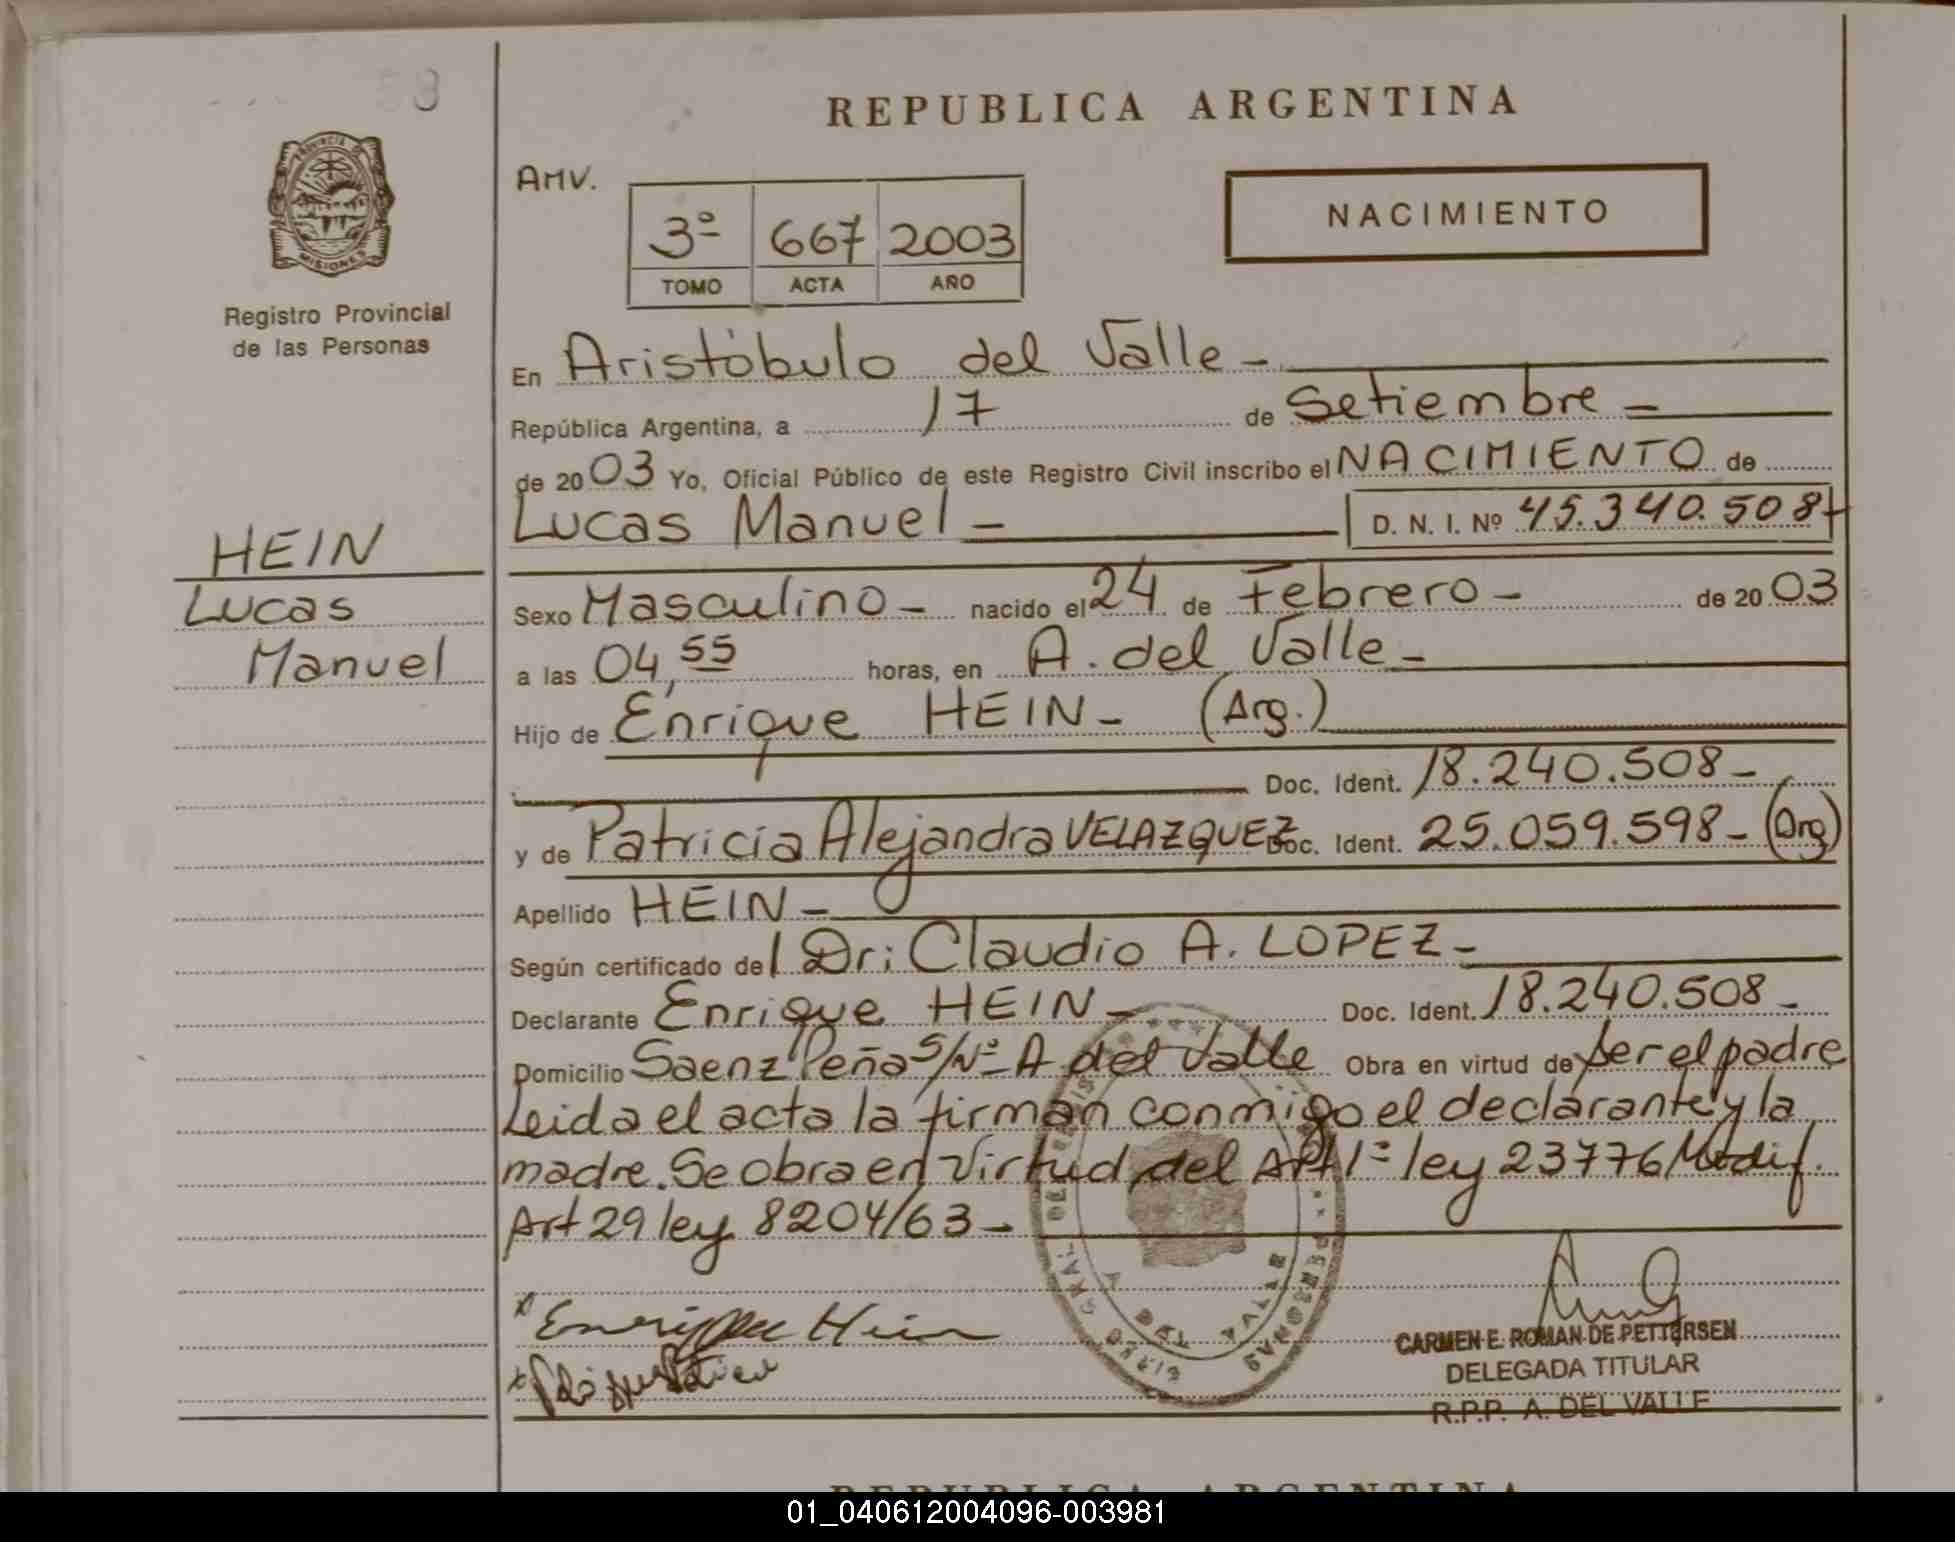 58
REPUBLICA ARGENTINA
PROVINCIA DE
MISIONES
Registro Provincial
de las Personas
AMV.
3º 667 2003
TOMO ACTA AÑO
NACIMIENTO
En Aristóbulo del Valle -
República Argentina, a 17 de Setiembre -
de 2003 Yo, Oficial Público de este Registro Civil inscribo el NACIMIENTO de
Lucas Manuel - D. N. I. Nº 45.340.508
HEIN
Lucas
Manuel
Sexo Masculino - nacido el 24 de Febrero - de 2003
a las 04,55 horas, en A. del Valle -
Hijo de Enrique HEIN - (Arg.)
Doc. Ident. 18.240.508 -
y de Patricia Alejandra VELAZQUEZ Doc. Ident. 25.059.598 - (Arg)
Apellido HEIN -
Según certificado del Dr: Claudio A. LOPEZ -
Declarante Enrique HEIN - Doc. Ident. 18.240.508 -
Domicilio Saenz Peña S/Nº - A del Valle Obra en virtud de ser el padre
Leida el acta la firman conmigo el declarante y la
madre. Se obra en virtud del Art 1º ley 23776 Modif.
Art 29 ley 8204/63 -
x Enrique Hein
x
CARMEN E. ROMAN DE PETTERSEN
DELEGADA TITULAR
R.P.P. A. DEL VALLE
REPUBLICA ARGENTINA
01_040612004096-003981